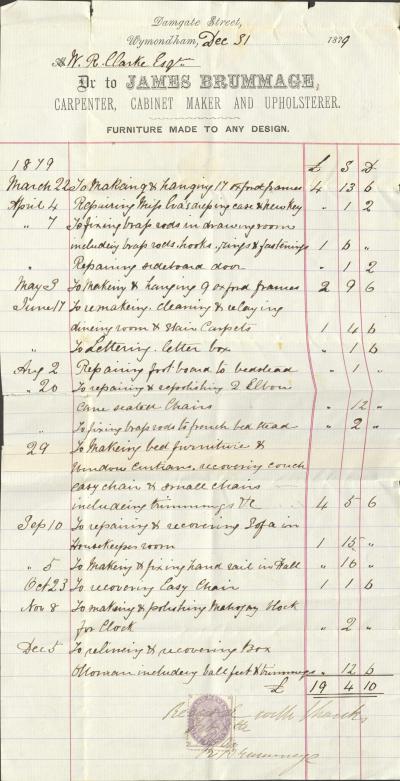 Damgate Street,
Wymondham, Dec 31 1879
W. R. Clarke Esqr
Dr to JAMES BRUMMAGE,
CARPENTER, CABINET MAKER AND UPHOLSTERER.
FURNITURE MADE TO ANY DESIGN.
1879 £ S D
March 22 To Making & hanging 17 oxford frames 4 13 6
April 4 Repairing Miss Eva's dressing case & new key " 1 2
" 7 To fixing brass rods in drawing room
including brass rods, hooks, rings & fastenings 1 6 "
" Repairing sideboard door " 1 2
May 3 To Making & hanging 9 oxford frames 2 9 6
June 17 To remaking, cleaning & relaying
dining room & Stair Carpets 1 4 6
" To Lettering letter box " 1 6
Aug 2 Repairing foot board to bedstead " 1 "
" 20 To repairing & repolishing 2 Elbow
Cane seated Chairs " 12 "
" To fixing brass rods to french bedstead " 2 "
29 To Making bed furniture &
Window Curtians, recovering couch
easy chair & small chairs
including trimmings &c 4 5 6
Sep 10 To repairing & recovering Sofa in
Housekeepers room 1 15 "
" 5 To Making & fixing hand rail in Hall " 16 "
Oct 23 To recovering Easy Chair 1 1 6
Nov 8 To making & polishing Mahogay block
for Clock " 2 "
Dec 5 To relining & recovering Box
Ottoman including ball feet & trimmings " 12 6
£ 19 4 10
with thanks
Brummage